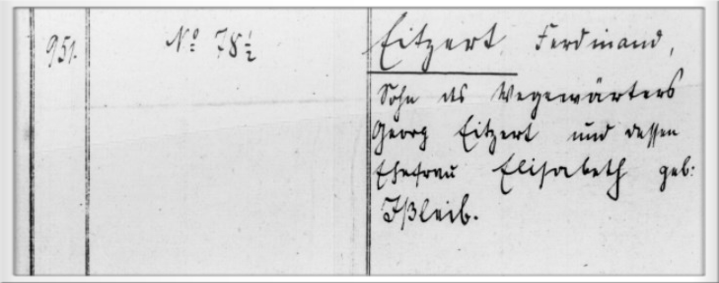 951. Nº 78½ Eitzert, Ferdinand,
Sohn des Wegewärters
Georg Eitzert und dessen
Ehefrau Elisabeth geb:
Ißleib.